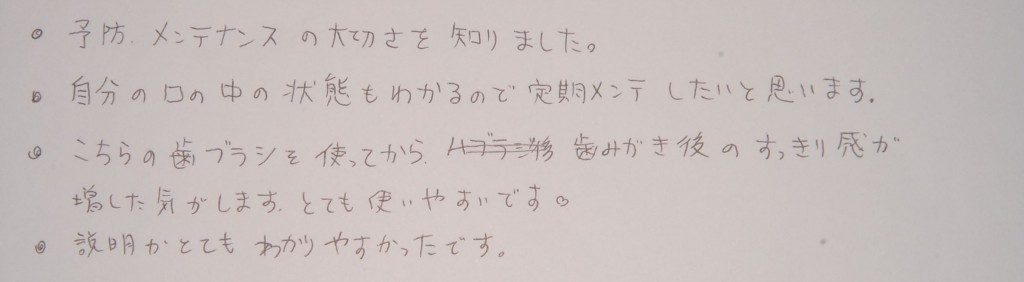 • 予防.メンテナンスの大切さを知りました。
• 自分の口の中の状態もわかるので定期メンテしたいと思います.
• こちらの歯ブラシを使ってから. 歯みがき後のすっきり感が
増した気がします.とても使いやすいです。
• 説明がとてもわかりやすかったです。